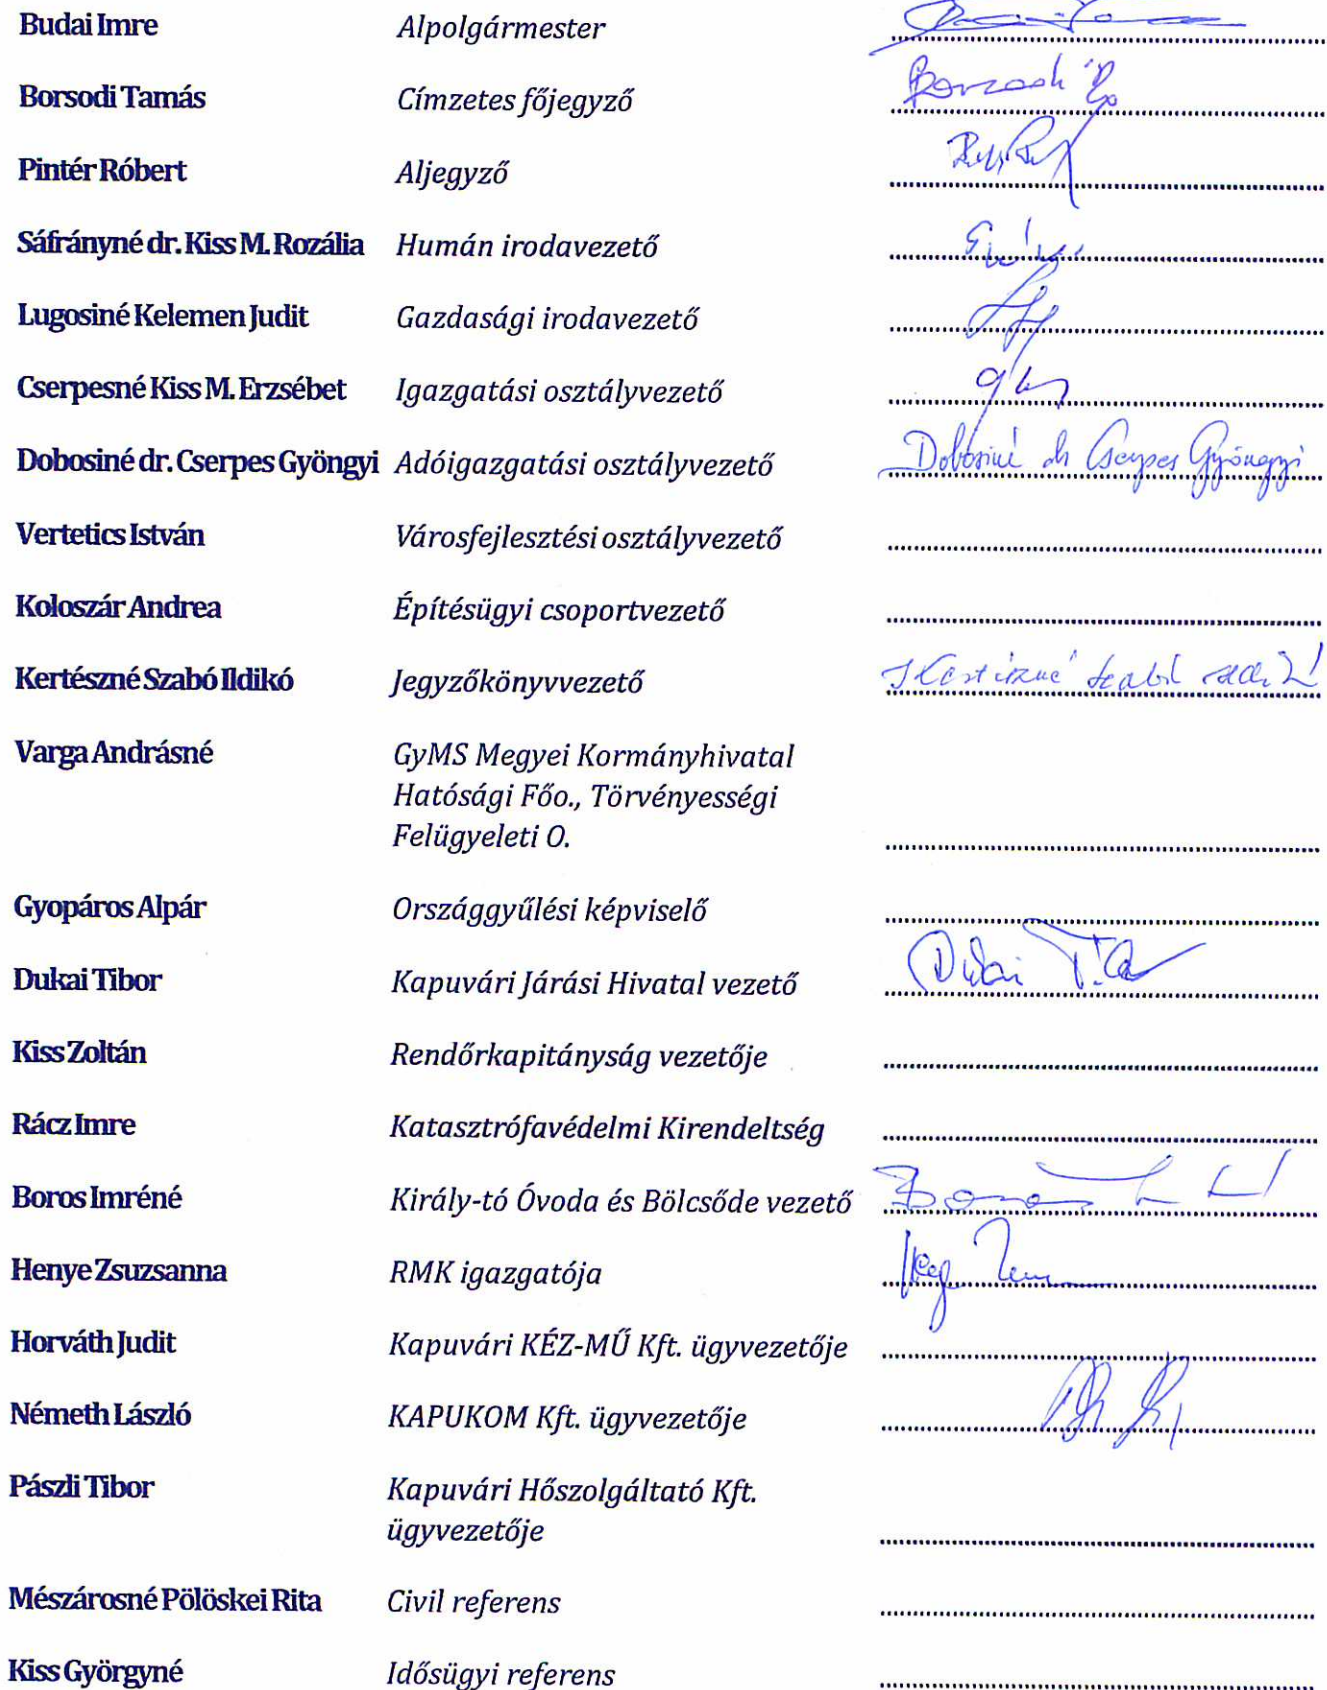 Budai Imre Alpolgármester
Borsodi Tamás Címzetes főjegyző
Pintér Róbert Aljegyző
Sáfrányné dr. Kiss M. Rozália Humán irodavezető
Lugosiné Kelemen Judit Gazdasági irodavezető
Cserpesné Kiss M. Erzsébet Igazgatási osztályvezető
Dobosiné dr. Cserpes Gyöngyi Adóigazgatási osztályvezető Dobosiné dr Cserpes Gyöngyi
Vertetics István Városfejlesztési osztályvezető
Koloszár Andrea Építésügyi csoportvezető
Kertészné Szabó Ildikó Jegyzőkönyvvezető Kertészné Szabó
Varga Andrásné GyMS Megyei Kormányhivatal
Hatósági Főo., Törvényességi
Felügyeleti O.
Gyopáros Alpár Országgyűlési képviselő
Dukai Tibor Kapuvári Járási Hivatal vezető Dukai
Kiss Zoltán Rendőrkapitányság vezetője
Rácz Imre Katasztrófavédelmi Kirendeltség
Boros Imréné Király-tó Óvoda és Bölcsőde vezető
Henye Zsuzsanna RMK igazgatója
Horváth Judit Kapuvári KÉZ-MŰ Kft. ügyvezetője
Németh László KAPUKOM Kft. ügyvezetője
Pászli Tibor Kapuvári Hőszolgáltató Kft.
ügyvezetője
Mészárosné Pölöskei Rita Civil referens
Kiss Györgyné Idősügyi referens